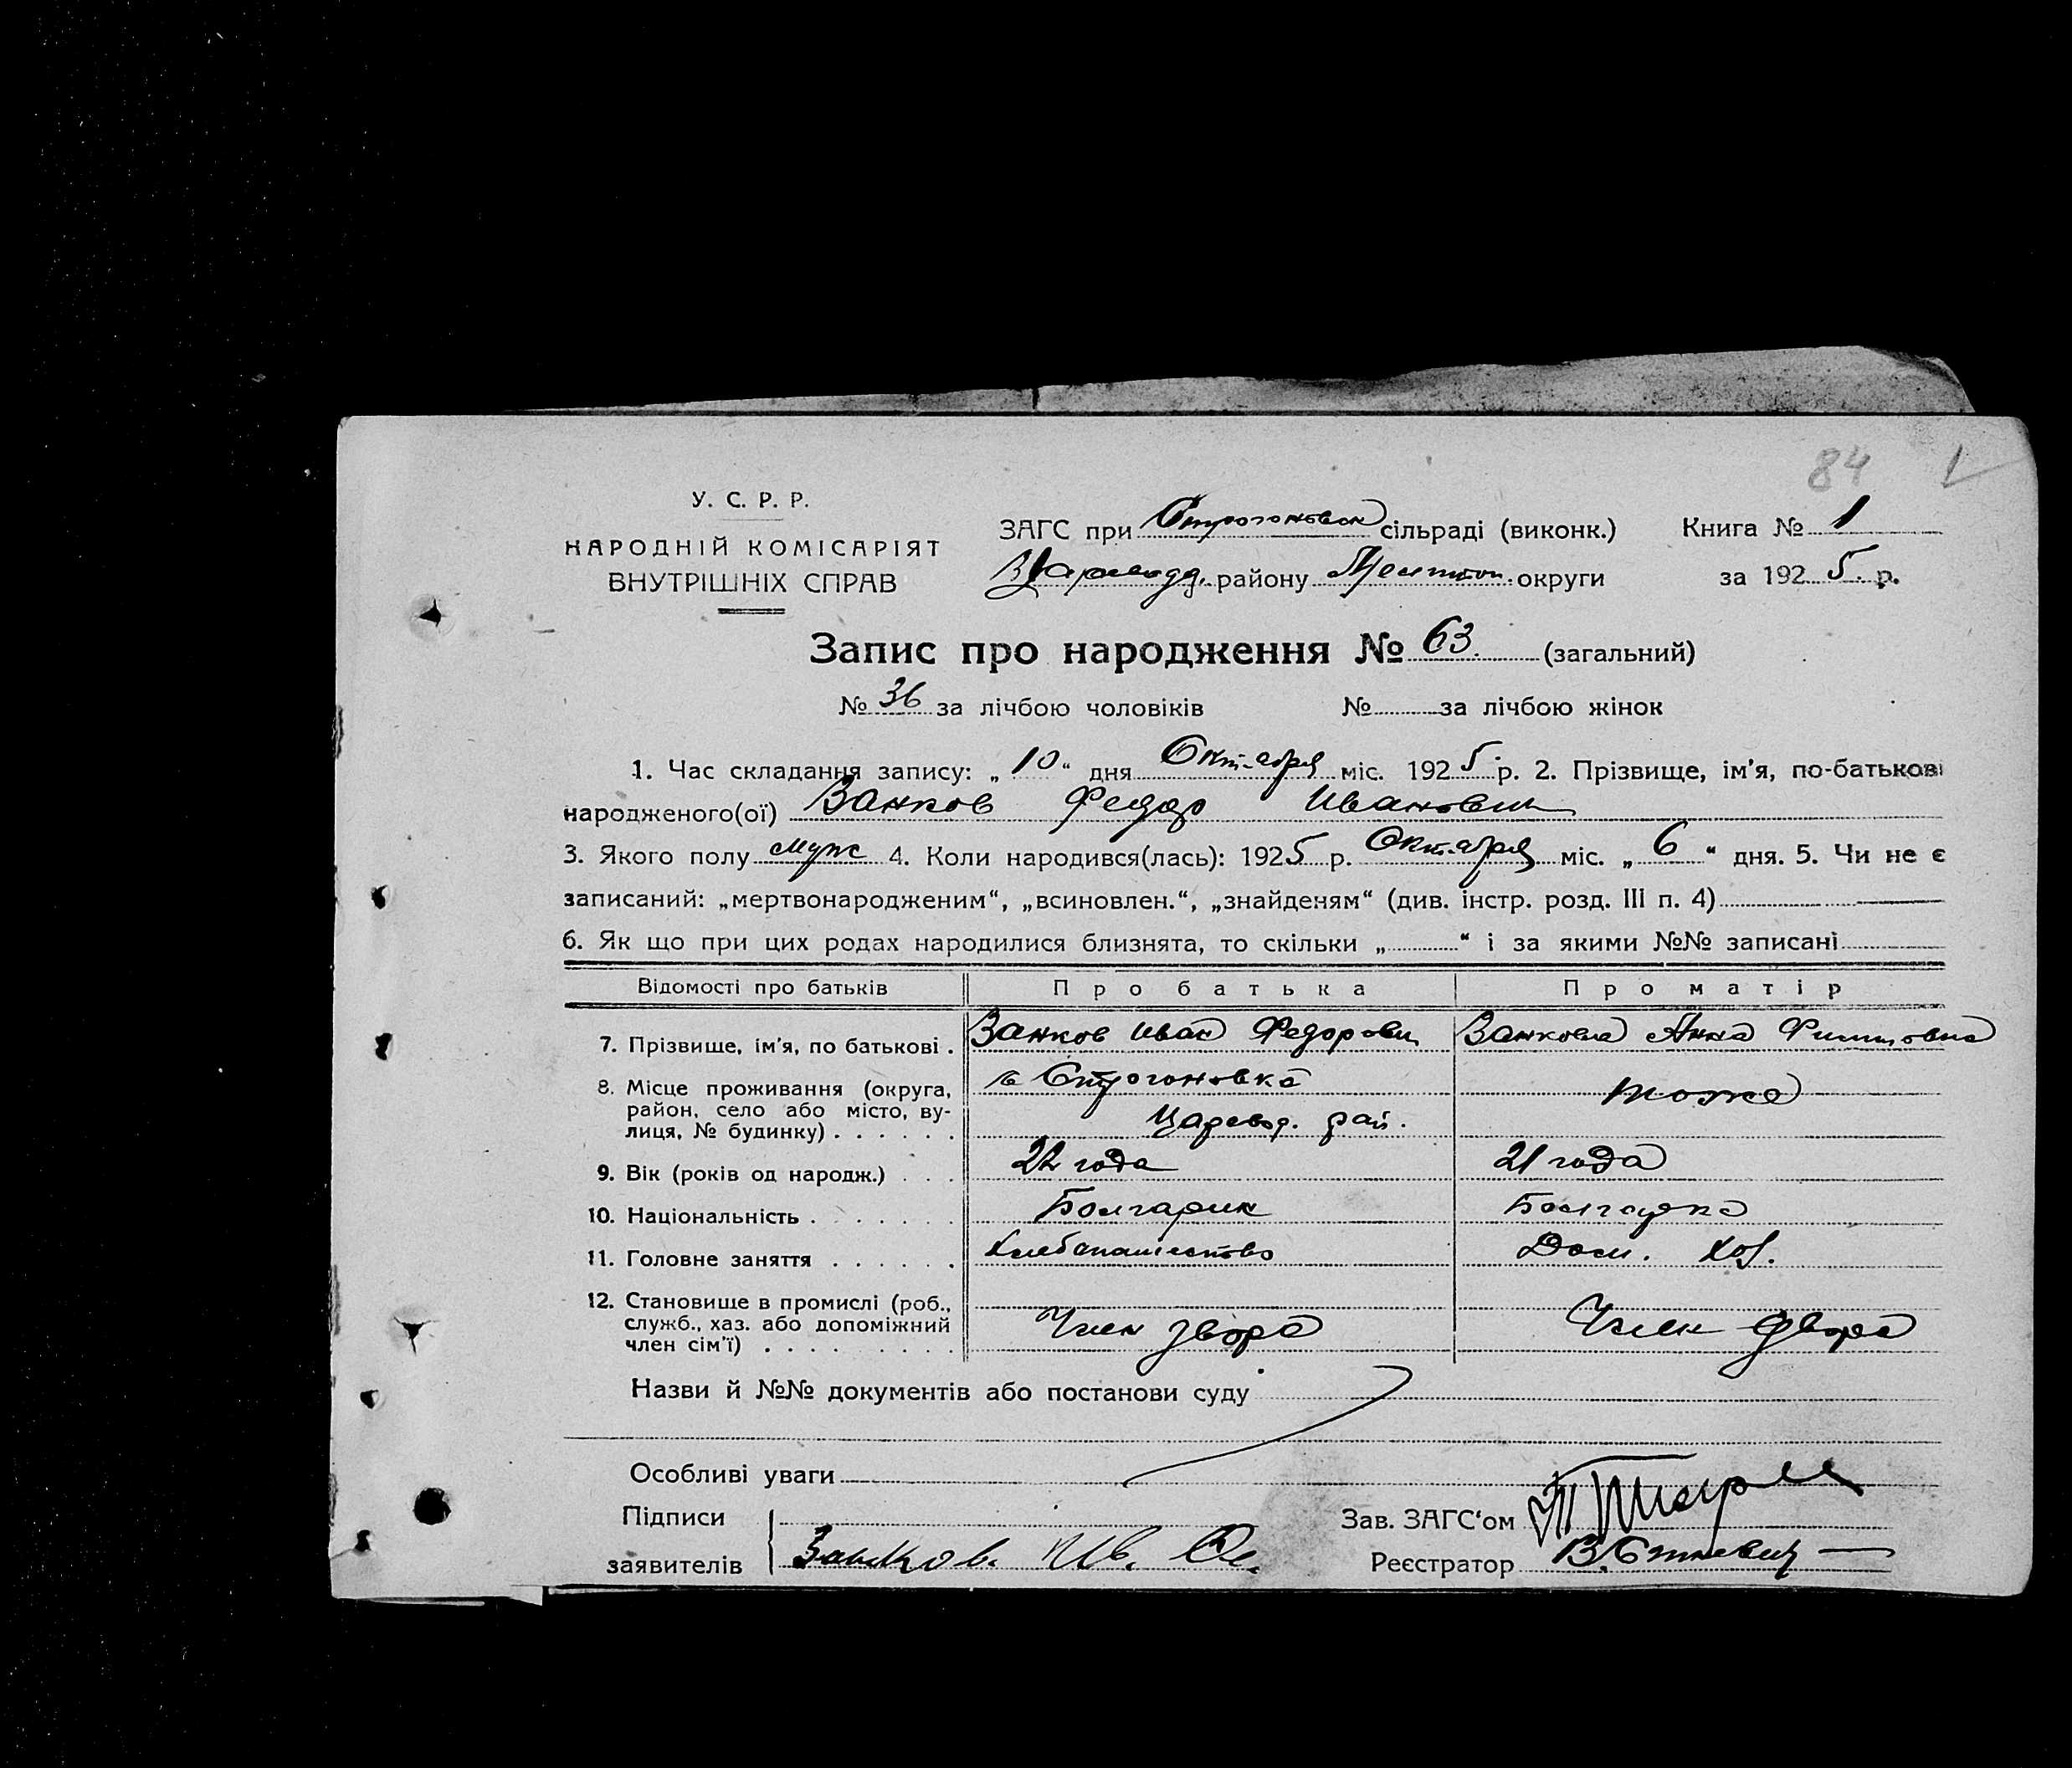 84
У. С. Р. Р.
НАРОДНІЙ КОМІСАРІЯТ
ВНУТРІШНІХ СПРАВ
ЗАГС при Строгоновск сільраді (виконк.) Книга № 1
району округи за 1925 р.
Запис про народження № 63. (загальний)
№ 36 за лічбою чоловіків № за лічбою жінок
1. Час складання запису: „10“ дня Октября міс. 1925 р. 2. Прізвище, ім'я, по-батькові
народженого(ої) Занков Федор Иванович
3. Якого полу муж 4. Коли народився(лась): 1925 р. Октября міс. „6“ дня. 5. Чи не є
записаний: „мертвонародженим“, „всиновлен.“, „знайденям“ (див. інстр. розд. III п. 4)
6. Як що при цих родах народилися близнята, то скільки „ “ і за якими №№ записані
Відомості про батьків Про батька Про матір
7. Прізвище, ім'я, по батькові . Занков Иван Федорович Занкова Анна Филиповна
8. Місце проживання (округа, район, село або місто, вулиця, № будинку) . . . . . . Строгоновка Царевод. рай. тоже
9. Вік (років од народж.) . . . 22 года 21 года
10. Національність . . . . . . . Болгарин Болгарка
11. Головне заняття . . . . . . Хлебопашество Дом. хоз.
12. Становище в промислі (роб., служб., хаз. або допоміжний член сім'ї) . . . . . . . . . Член двора Член двора
Назви й №№ документів або постанови суду
Особливі уваги
Підписи
заявителів Занков. Ив.
Зав. ЗАГС'ом
Реєстратор